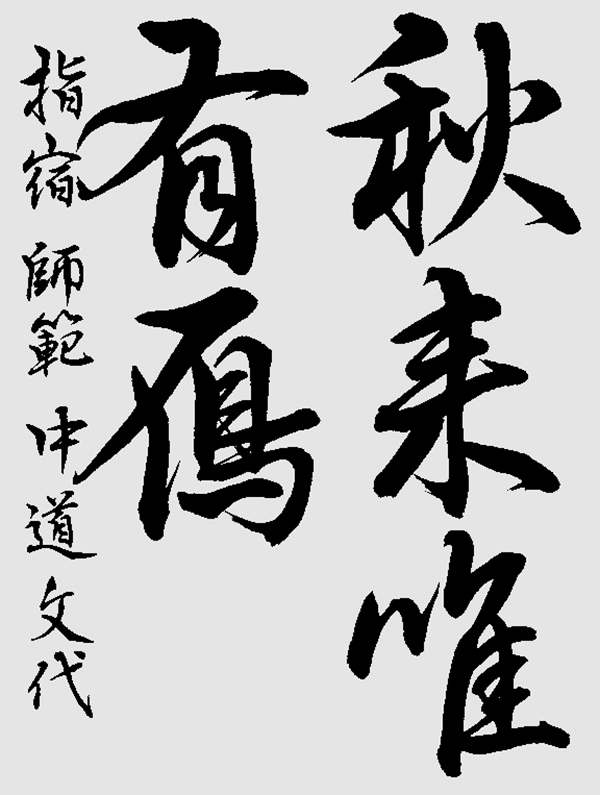 秋来唯
有鴈
指宿 師範 中道文代